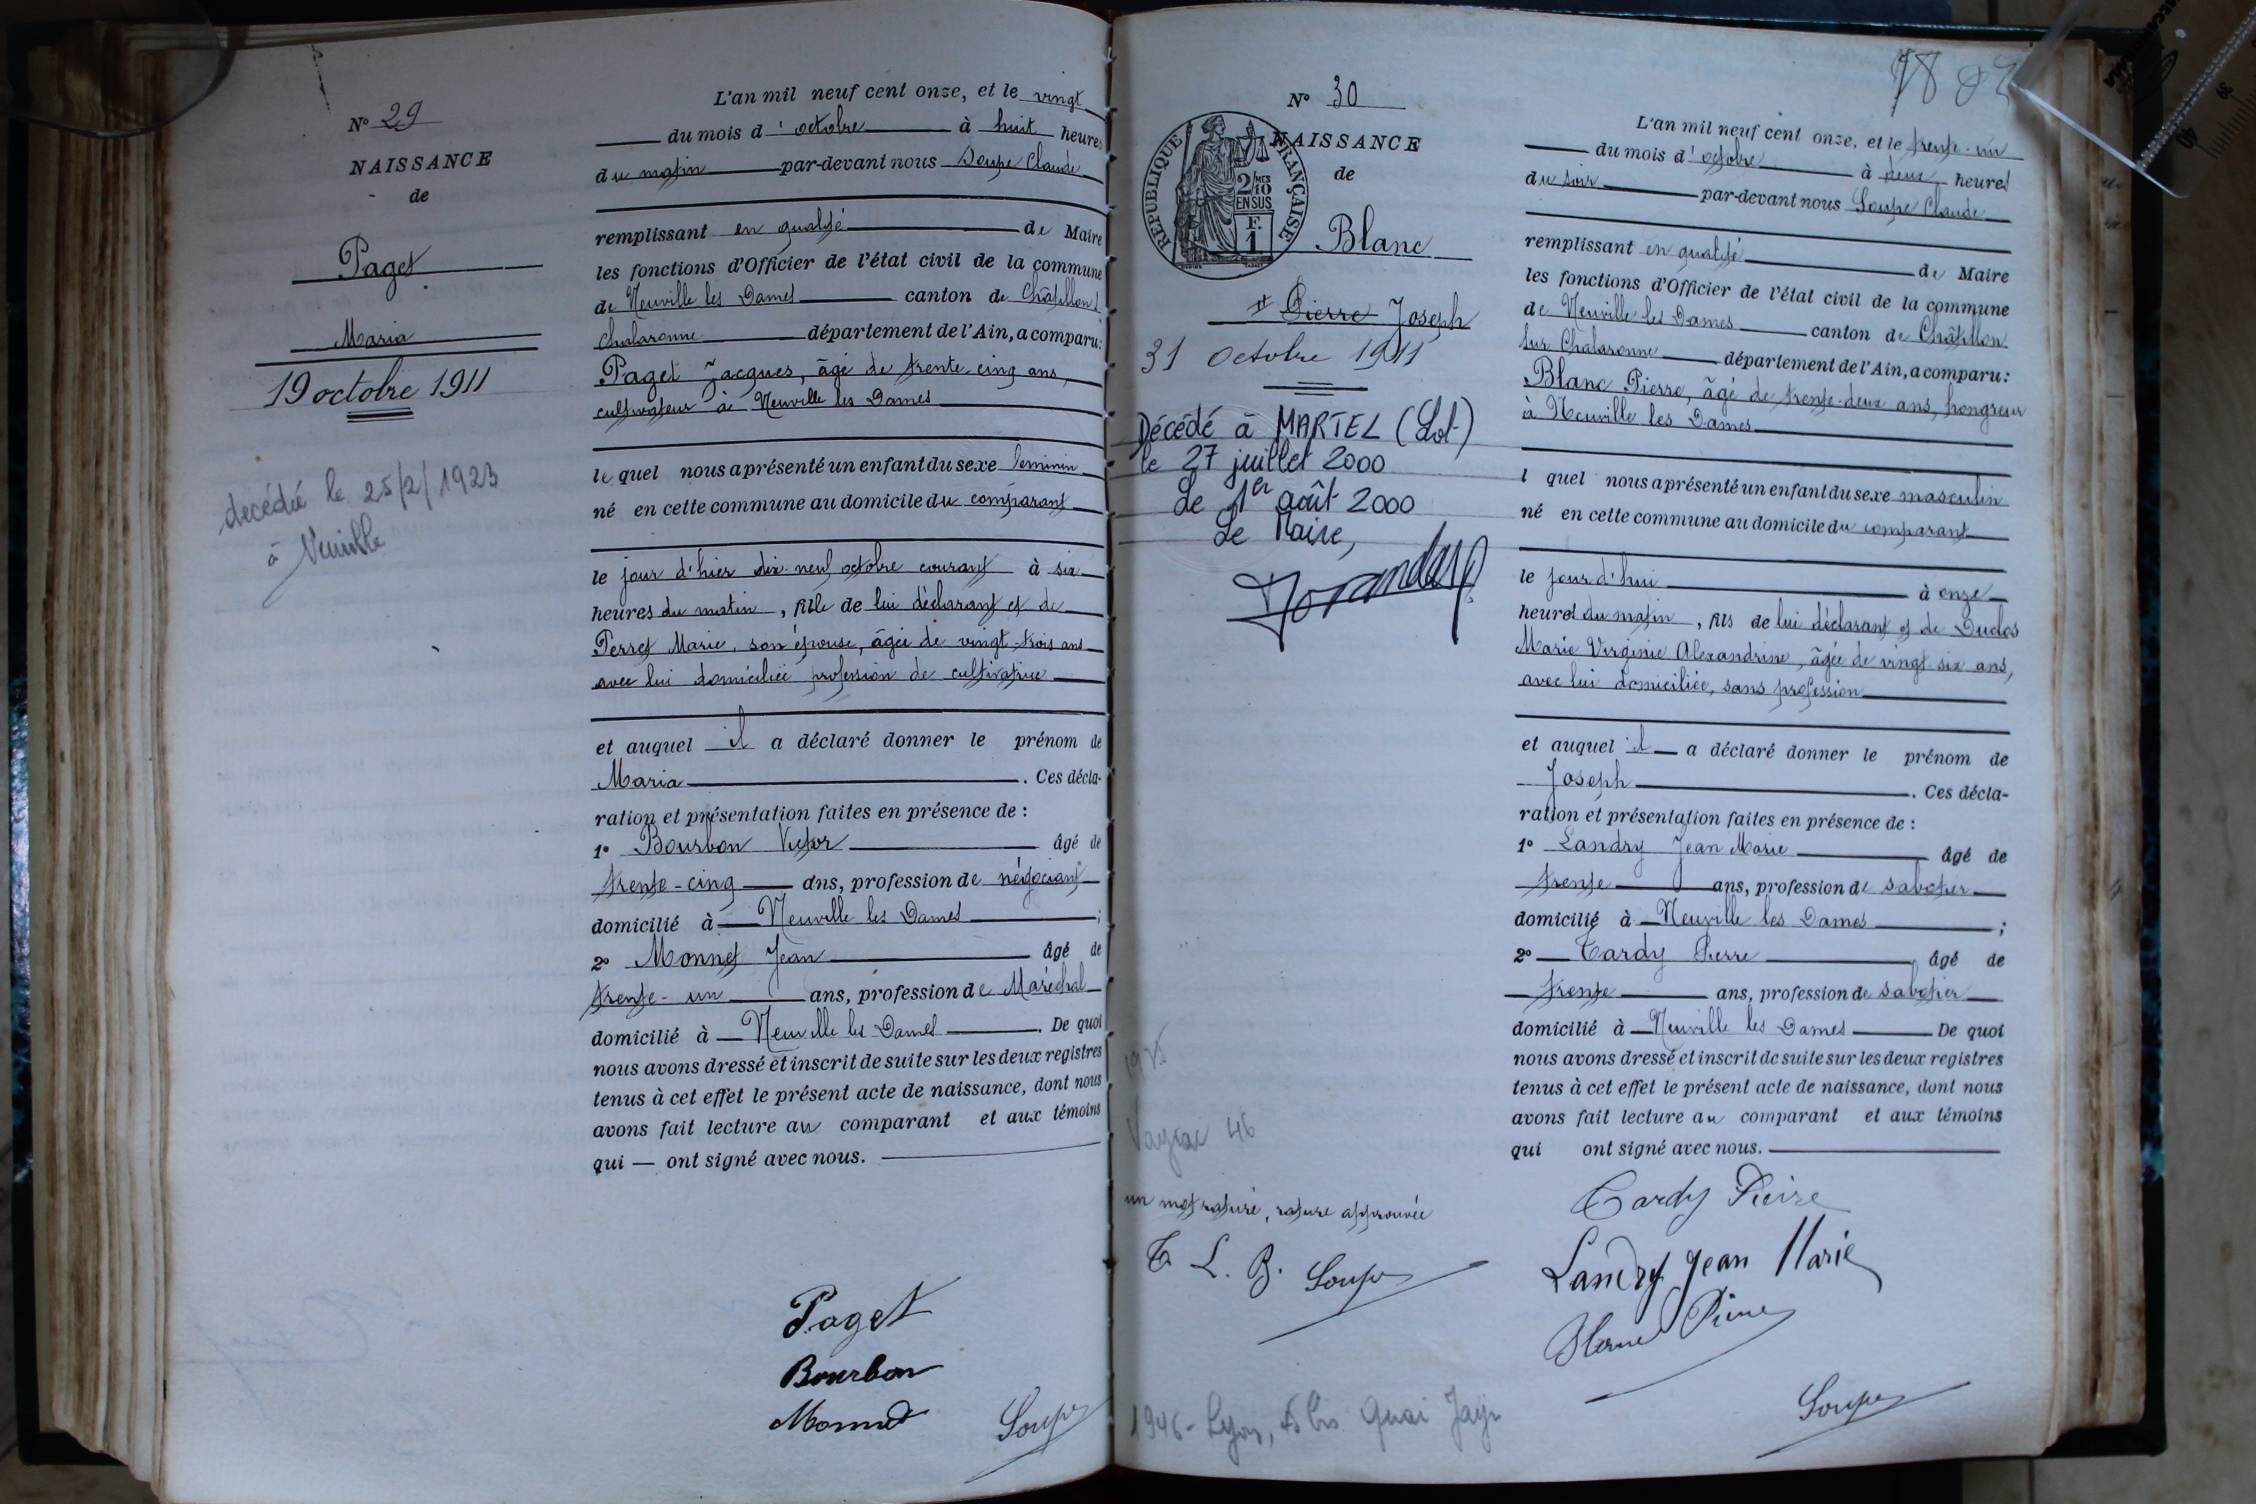 N° 29
NAISSANCE
de
Paget
Maria
19 octobre 1911
decédée le 25/2/1923
à Neuville
L'an mil neuf cent onze, et le vingt
du mois d'octobre à huit heures
du matin par-devant nous Soupe Claude
remplissant en qualité de Maire
les fonctions d'Officier de l'état civil de la commune
de Neuville les Dames canton de Châtillon s
Chalaronne département de l'Ain, a comparu:
Paget Jacques, âgé de trente cinq ans,
cultivateur à Neuville les Dames
le quel nous a présenté un enfant du sexe feminin
né en cette commune au domicile du comparant
le jour d'hier dix-neuf octobre courant à six
heures du matin, fille de lui déclarant et de
Perret Marie, son épouse, âgée de vingt-trois ans
avec lui domiciliée profession de cultivatrice
et auquel il a déclaré donner le prénom de
Maria . Ces décla-
ration et présentation faites en présence de :
1° Bourbon Victor âgé de
trente-cinq ans, profession de négociant
domicilié à Neuville les Dames ;
2° Monnet Jean âgé de
trente-un ans, profession de Maréchal
domicilié à Neuville les Dames . De quoi
nous avons dressé et inscrit de suite sur les deux registres
tenus à cet effet le présent acte de naissance, dont nous
avons fait lecture au comparant et aux témoins
qui — ont signé avec nous.
Paget
Bourbon
Monnet
Soupe
N° 30
NAISSANCE
de
RÉPUBLIQUE FRANÇAISE
2/10 MES
EN SUS
F.
1
Blanc
Pierre Joseph
31 octobre 1911
Décédé à MARTEL (Lot)
le 27 juillet 2000
Le 1er août 2000
Le Maire,
Vayrac 46
un mot raturé, rature approuvée
T L. B. Soupe
1946 - Lyon, bis Quai Jayr
L'an mil neuf cent onze, et le trente-un
du mois d'octobre à deux heures
du soir par-devant nous Soupe Claude
remplissant en qualité de Maire
les fonctions d'Officier de l'état civil de la commune
de Neuville les Dames canton de Châtillon
sur Chalaronne département de l'Ain, a comparu:
Blanc Pierre, âgé de trente-deux ans, hongreur
à Neuville les Dames
l quel nous a présenté un enfant du sexe masculin
né en cette commune au domicile du comparant
le jour d'hui à onze
heures du matin, fils de lui déclarant et de Duclos
Marie Virginie Alexandrine, âgée de vingt six ans,
avec lui domiciliée, sans profession
et auquel il a déclaré donner le prénom de
Joseph . Ces décla-
ration et présentation faites en présence de :
1° Landry Jean Marie âgé de
trente ans, profession de sabotier
domicilié à Neuville les Dames ;
2° Tardy Pierre âgé de
trente ans, profession de sabotier
domicilié à Neuville les Dames De quoi
nous avons dressé et inscrit de suite sur les deux registres
tenus à cet effet le présent acte de naissance, dont nous
avons fait lecture au comparant et aux témoins
qui ont signé avec nous.
Tardy Pierre
Landry Jean Marie
Blanc Pierre
Soupe